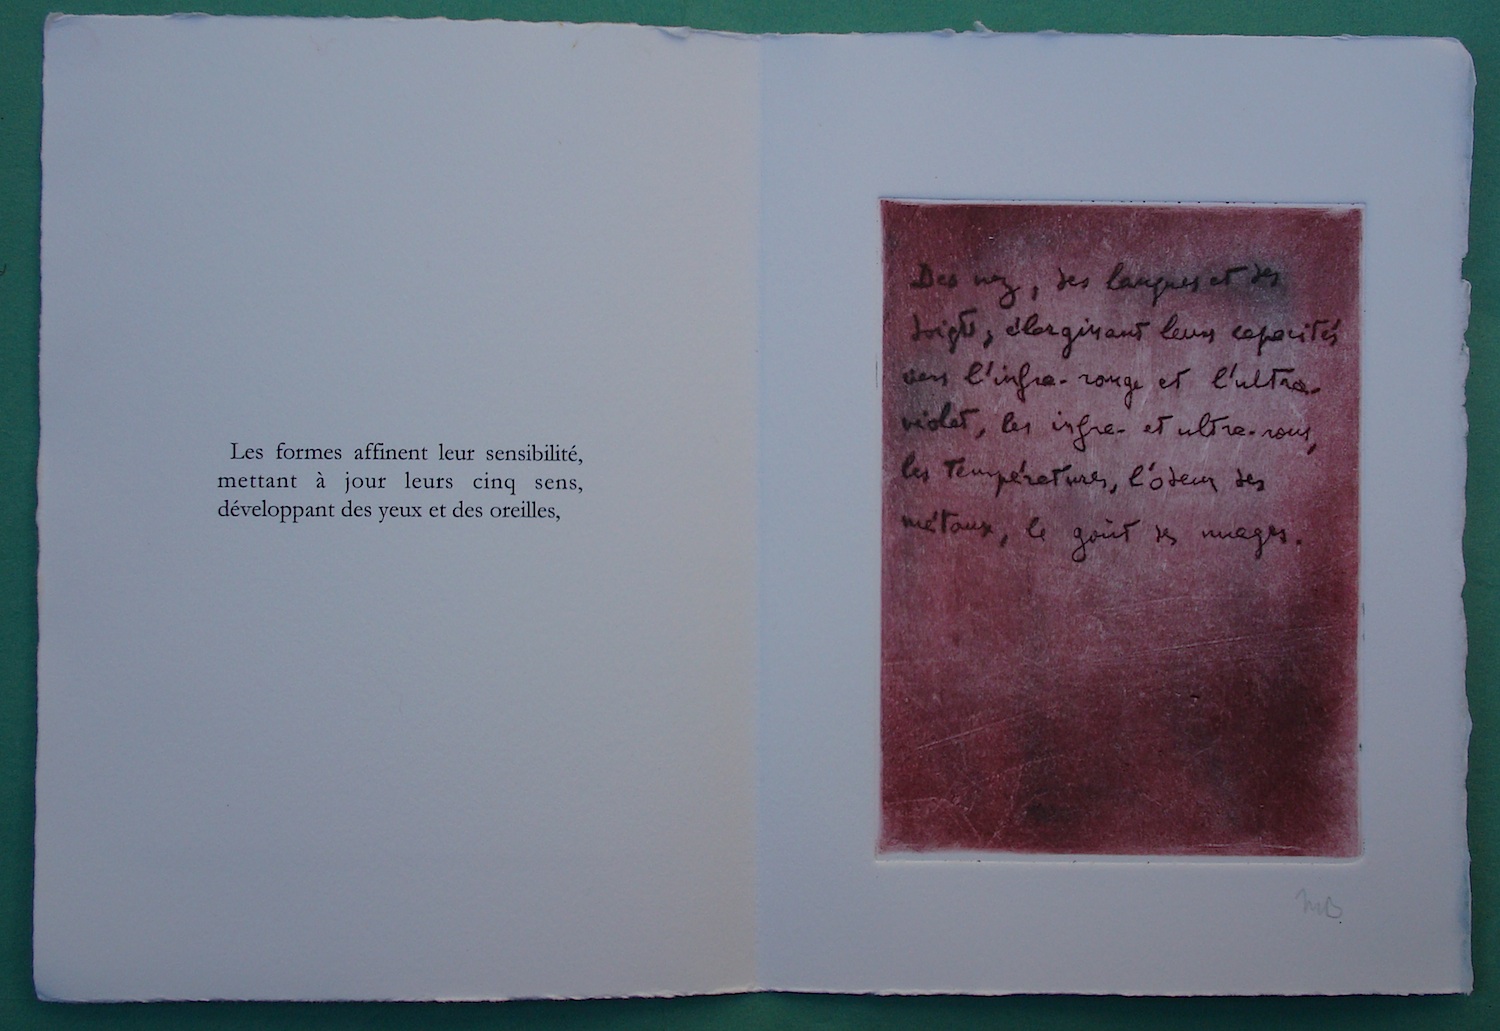 Les formes affinent leur sensibilité,
mettant à jour leurs cinq sens,
développant des yeux et des oreilles,
Des nez, des langues et des
doigts, élargissant leurs capacités
vers l'infra-rouge et l'ultra-
violet, les infra- et ultra-sons,
les températures, l'odeur des
métaux, le goût des nuages.
MB